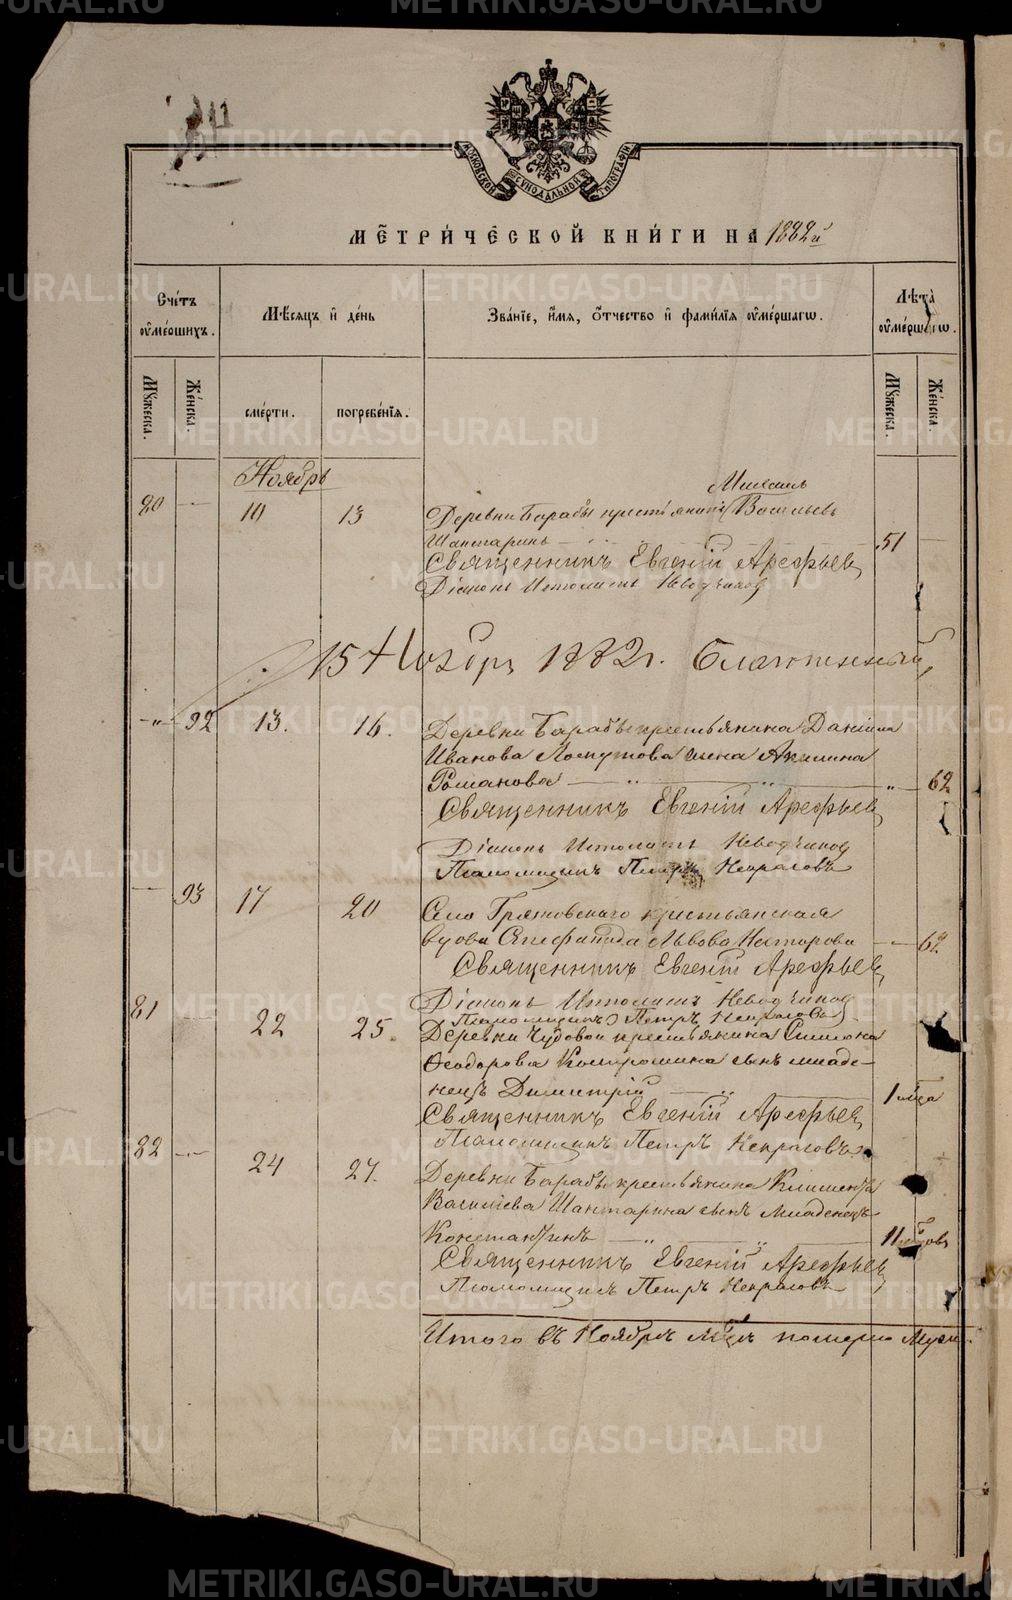 МОСКОВСКОЙ СѴНОДАЛЬНОЙ ТИПОГРАФІИ
МЕТРИЧЕСКОЙ КНИГИ НА 1882й
Счетъ оумершихъ.
Мѣсяцъ и день
Званіе, имя, отчество и фамилія оумершагѡ.
Лѣта оумершагѡ.
Мужеска.
Женска.
смерти.
погребенія.
Мужеска.
Женска.
Ноябрь
Михаилъ
80 — 10 13 Деревни Барабы крестьянинъ Васильевъ
Шангаринъ 51
Священникъ Евгеній Арефьевъ
Діаконъ Ипполитъ Неводчиковъ
15 Ноября 1882 г. Благочинный
-"- 92 13. 16. Деревни Барабы крестьянина Даніила
Иванова Лоскутова жена Акилина
Романова — " — " — " — 62
Священникъ Евгеній Арефьевъ
Діаконъ Ипполитъ Неводчиковъ
Псаломщикъ Петръ Некрасовъ
— 93 17 20 Села Грязновскаго крестьянская
вдова Стефанида Львова Нагорова — 62
Священникъ Евгеній Арефьевъ
Діаконъ Ипполитъ Неводчиковъ
Псаломщикъ Петръ Некрасовъ
81 22 25. Деревни Чудовой крестьянина Симеона
Ѳеодорова Костромина сынъ младе-
нецъ Димитрій — " — 1 м̃ца
Священникъ Евгеній Арефьевъ
Псаломщикъ Петръ Некрасовъ
82 -"- 24 27. Деревни Барабы крестьянина Климента
Васильева Шангарина сынъ младенецъ
Константинъ — " — " — 11 м̃цовъ
Священникъ Евгеній Арефьевъ
Псаломщикъ Петръ Некрасовъ
Итого въ Ноябрѣ м̃цѣ померло муж.
METRIKI.GASO-URAL.RU